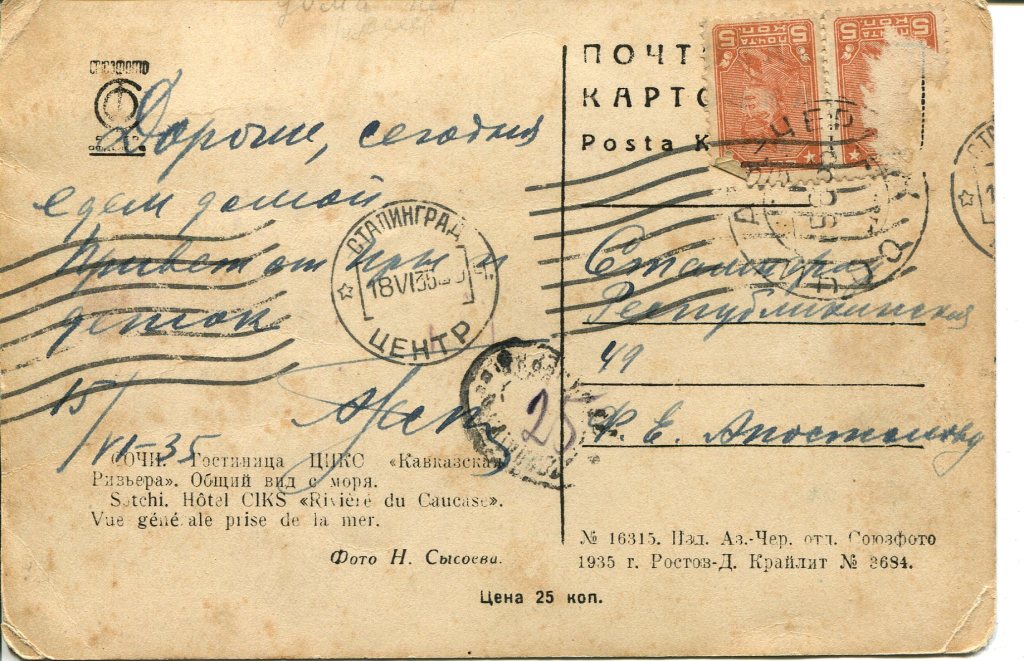 союзфото
Дорогие, сегодня
едем домой
Привет от Иры и
деток
15/VI-35
СОЧИ. Гостиница ЦИКС «Кавказская
Ривьера». Общий вид с моря.
Sotchi. Hôtel CIKS «Riviére du Caucase».
Vue géné ale prise de la mer.
Фото Н. Сысоева.
Цена 25 коп.
СТАЛИНГРАД
18 VI 35
ЦЕНТР
25
ПОЧТ
КАРТО
Posta K
ПОЧТА
5 КОП
ПОЧТА
5 КОП
Сталинград
Республиканская
49
Ф. Е. Апостолову
№ 16315. Изд. Аз.-Чер. отд. Союзфото
1935 г. Ростов-Д. Крайлит № 3684.